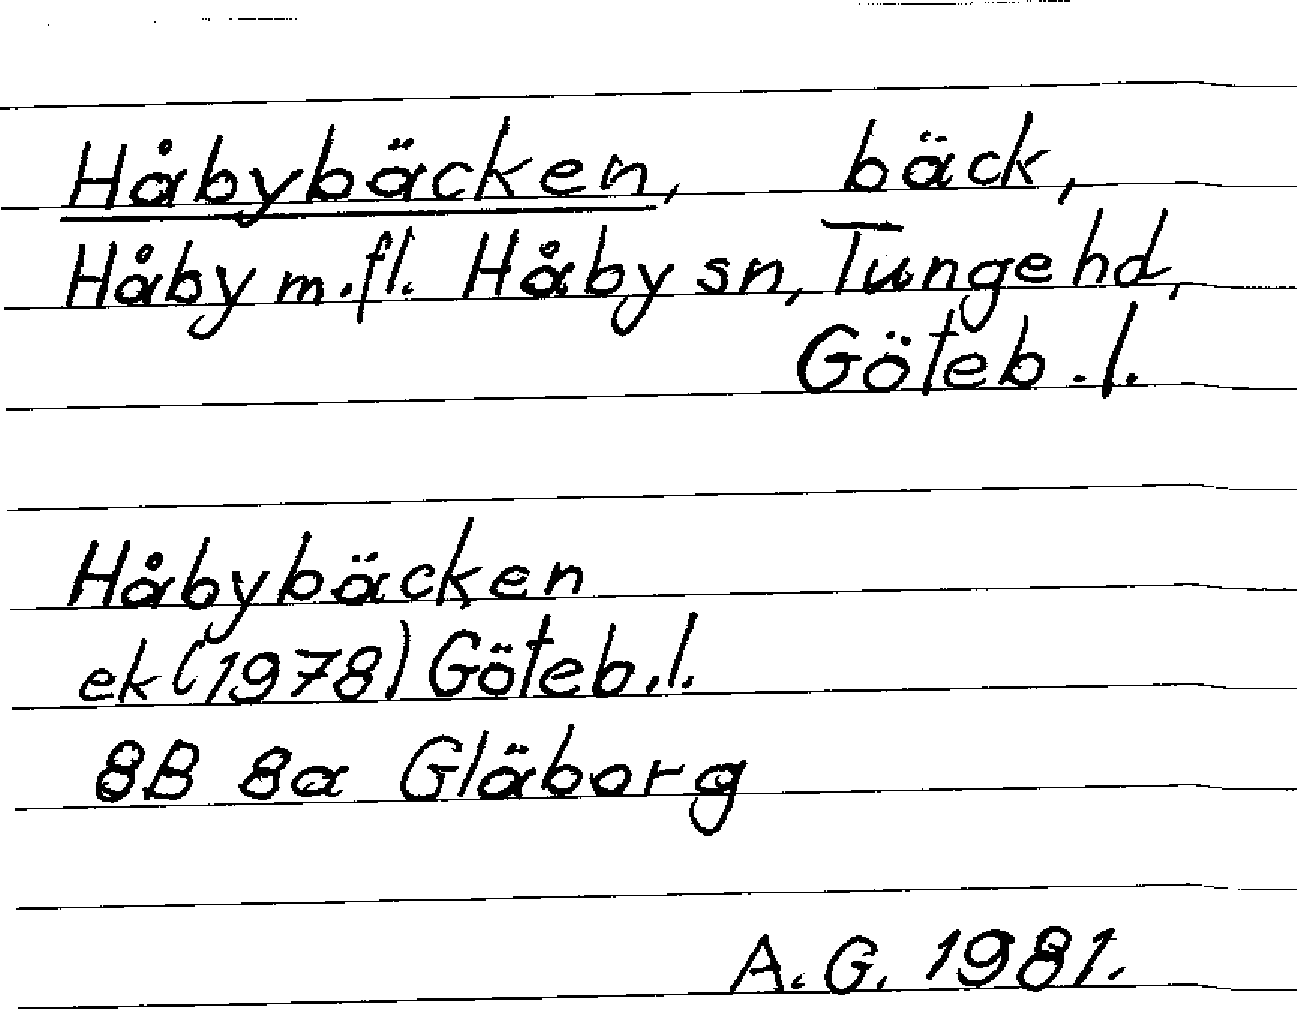 Håbybäcken, bäck,
Håby m.fl. Håby sn, Tunge hd,
Göteb.l.
Håbybäcken
ek (1978) Göteb.l.
8B 8a Gläborg
A.G. 1981.